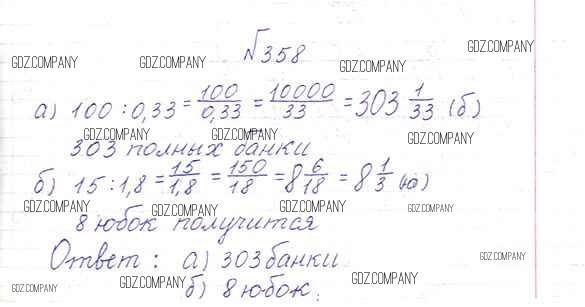 №358
GDZ.COMPANY GDZ.COMPANY GDZ.COMPANY GDZ.COMPANY
а) 100 : 0,33 = 100/0,33 = 10000/33 = 303 1/33 (б)
GDZ.COMPANY GDZ.COMPANY GDZ.COMPANY
303 полных банки
б) 15 : 1,8 = 15/1,8 = 150/18 = 8 6/18 = 8 1/3 (ю)
GDZ.COMPANY GDZ.COMPANY GDZ.COMPANY GDZ.COMPANY
8 юбок получится
Ответ : а) 303 банки
GDZ.COMPANY
б) 8 юбок.
GDZ.COMPANY GDZ.COMPANY GDZ.COMPANY